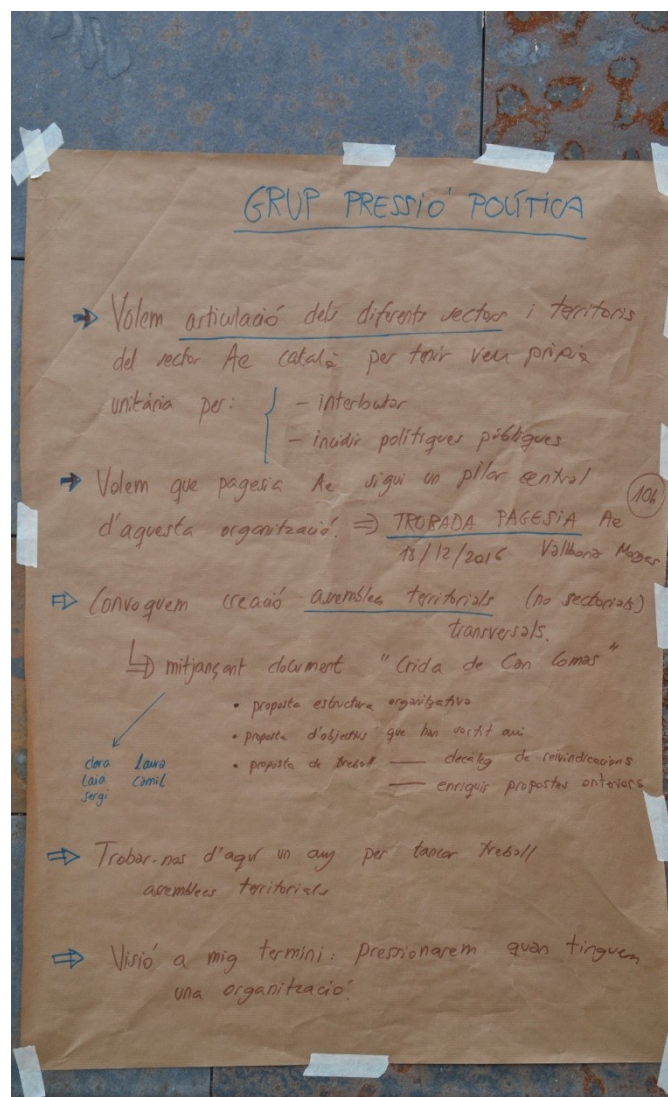 GRUP PRESSIÓ POLÍTICA
Volem articulació dels diferents sectors i territoris
del sector Ae català per tenir veu pròpia
unitària per: - interlocutar
- incidir polítiques públiques
Volem que pagesia Ae sigui un pilar central
d'aquesta organització. => TROBADA PAGESIA Ae
10h
18/12/2016 Vallbona Monges
Convoquem creació assemblees territorials (no sectorials)
transversals.
mitjançant document "Crida de Can Comas"
• proposta estructura organitzativa
• proposta d'objectius que han sortit avui
• proposta de treball — decàleg de reivindicacions
— enriquir propostes anteriors
clara laura
laia camil
sergi
Trobar-nos d'aquí un any per tancar treball
assemblees territorials
Visió a mig termini: pressionarem quan tinguem
una organització.